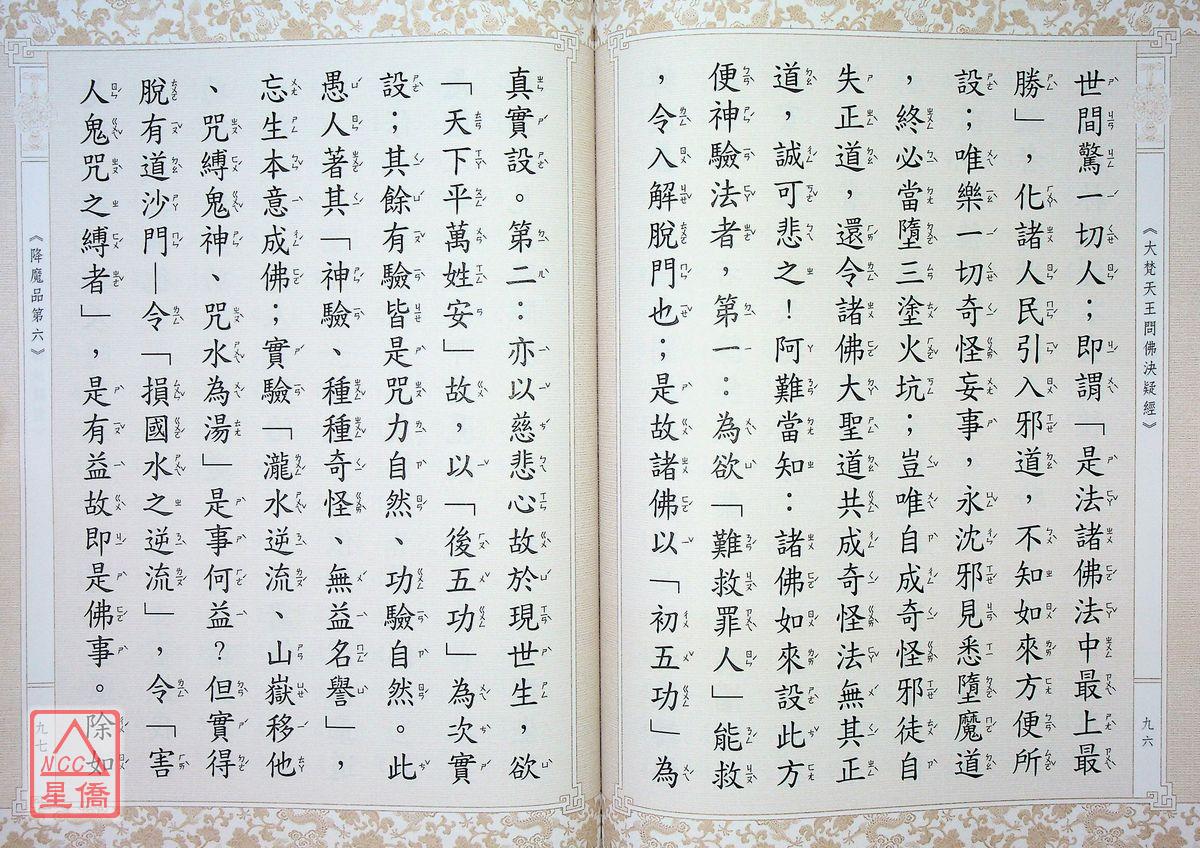 《大梵天王問佛決疑經》
九六
世間驚一切人；即謂「是法諸佛法中最上最
勝」，化諸人民引入邪道，不知如來方便所
設；唯樂一切奇怪妄事，永沈邪見悉墮魔道
，終必當墮三塗火坑；豈唯自成奇怪邪徒自
失正道，還令諸佛大聖道共成奇怪法無其正
道，誠可悲之！阿難當知：諸佛如來設此方
便神驗法者，第一：為欲「難救罪人」能救
，令入解脫門也；是故諸佛以「初五功」為
真實設。第二：亦以慈悲心故於現世生，欲
「天下平萬姓安」故，以「後五功」為次實
設；其餘有驗皆是咒力自然、功驗自然。此
愚人著其「神驗、種種奇怪、無益名譽」，
忘生本意成佛；實驗「瀧水逆流、山嶽移他
、咒縛鬼神、咒水為湯」是事何益？但實得
脫有道沙門—令「損國水之逆流」，令「害
人鬼咒之縛者」，是有益故即是佛事。除如
《降魔品第六》
九七
NCC
星僑